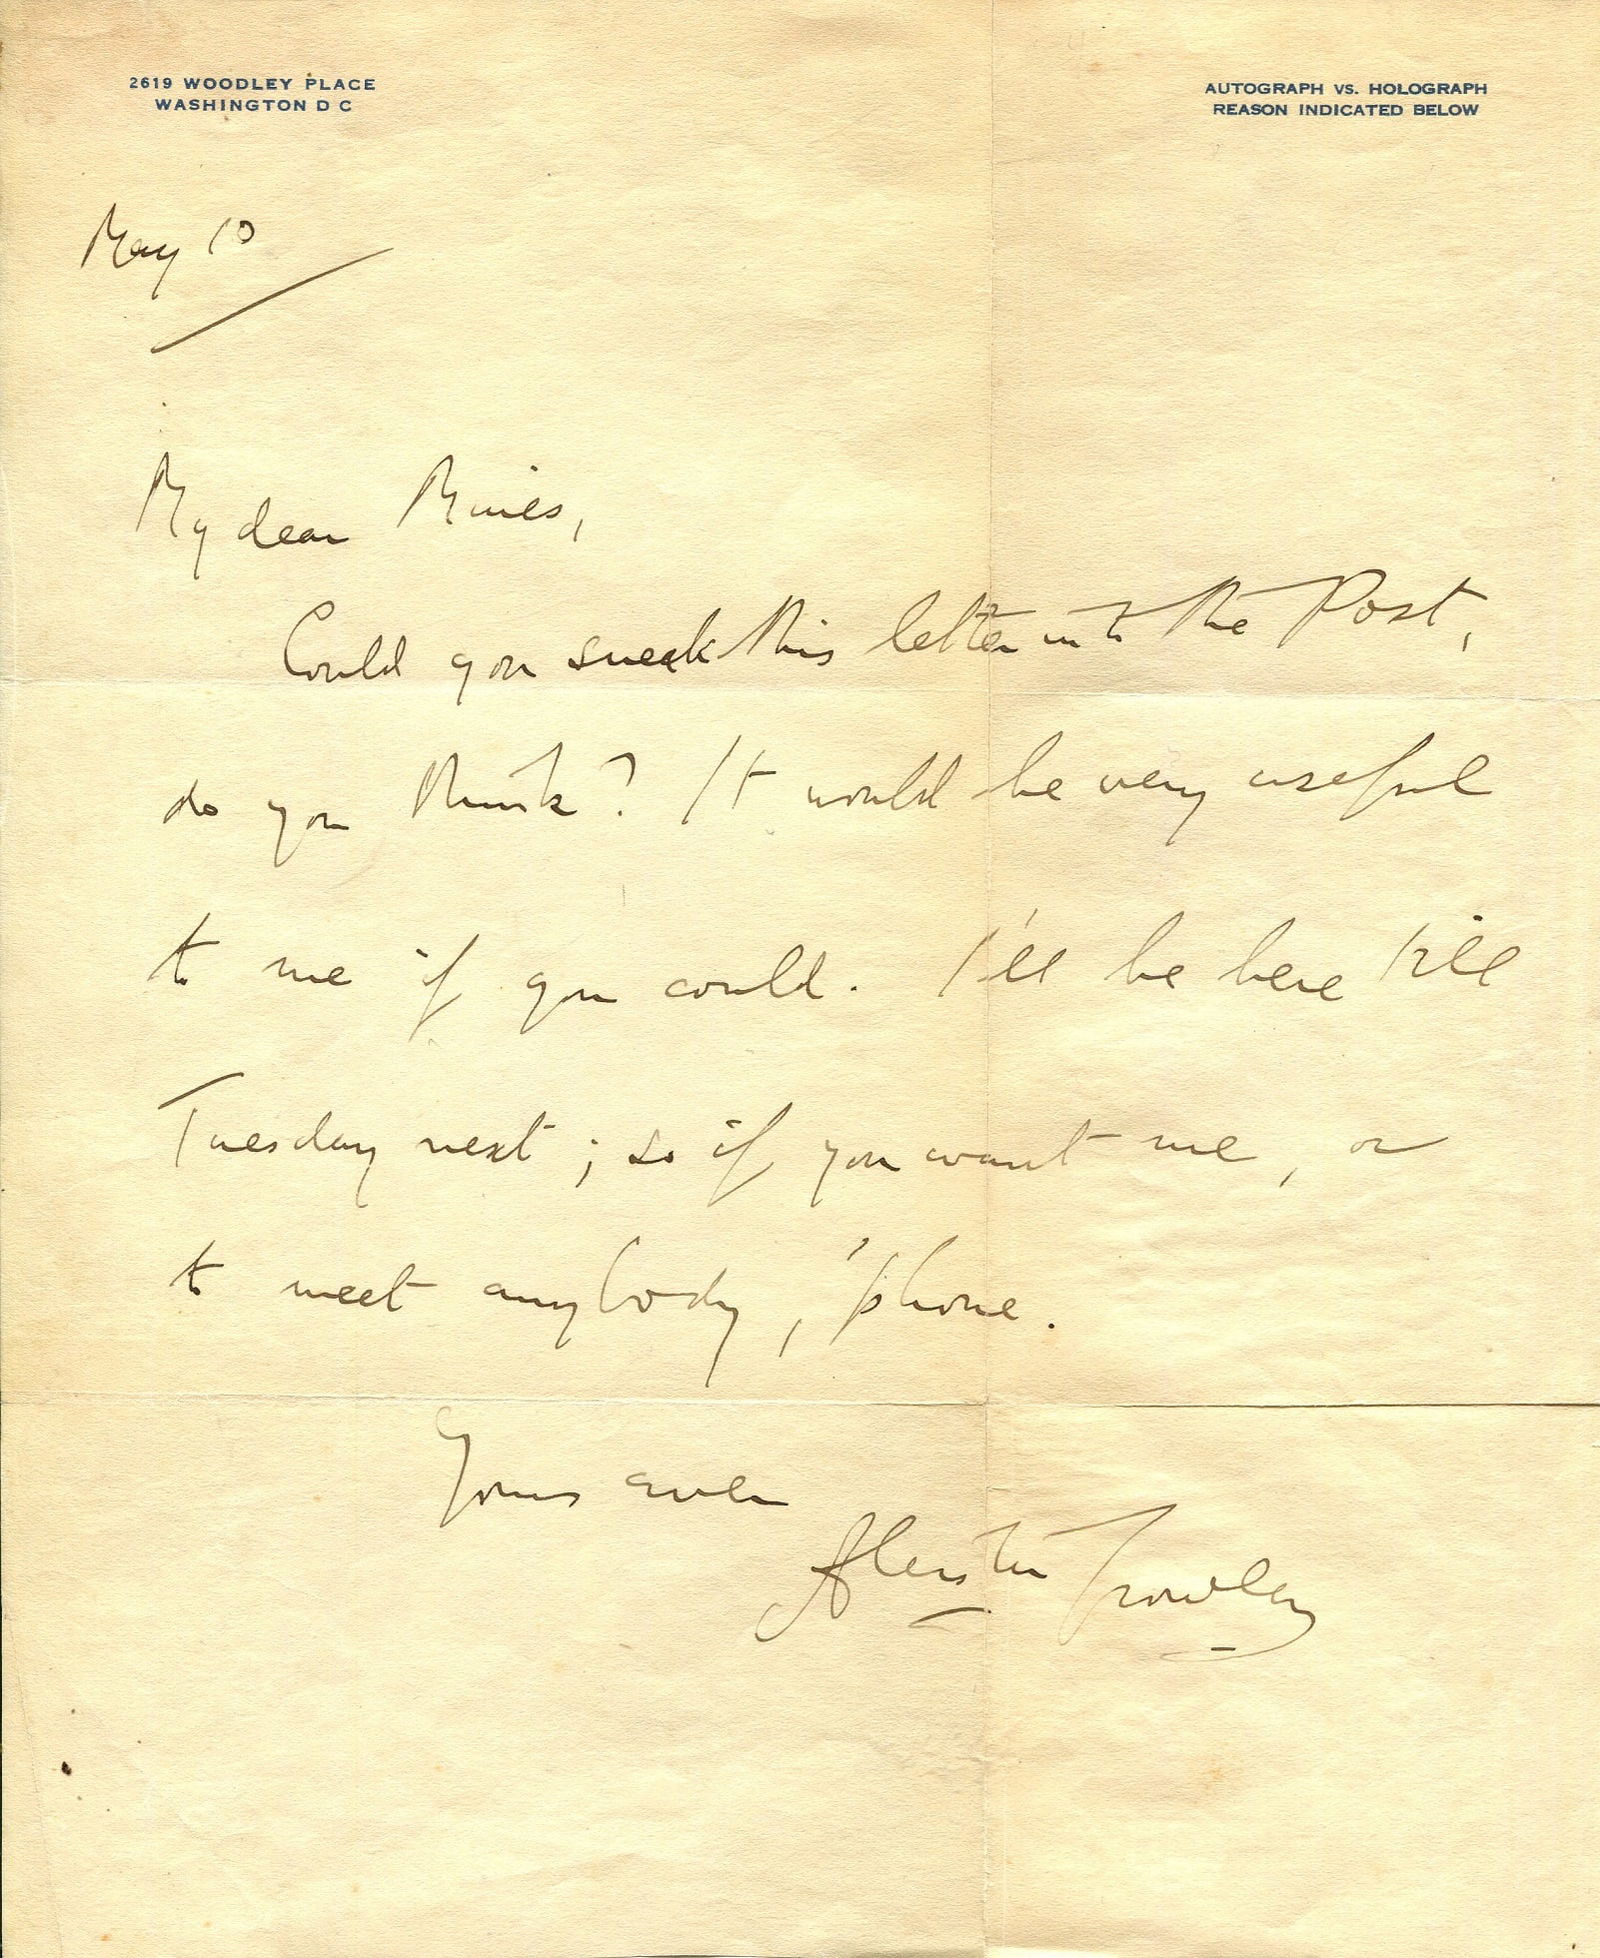 2619 WOODLEY PLACE
WASHINGTON D C
AUTOGRAPH VS. HOLOGRAPH
REASON INDICATED BELOW
May 10
My dear
Could you sneak this letter into the Post,
do you think? It would be very useful
to me if you could. I'll be here till
Tuesday next; so if you want me, or
to meet anybody, 'phone.
Yours ever
Aleister Crowley